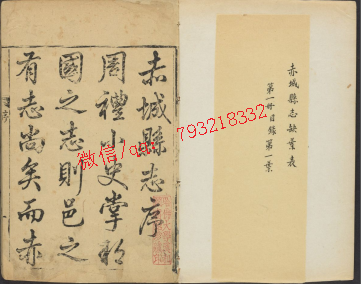 赤城縣志缺葉表
第一冊目錄第一葉
赤城縣志序
周禮小史掌邦
國之志則邑之
有志尚矣而赤
微信/qq：793218332